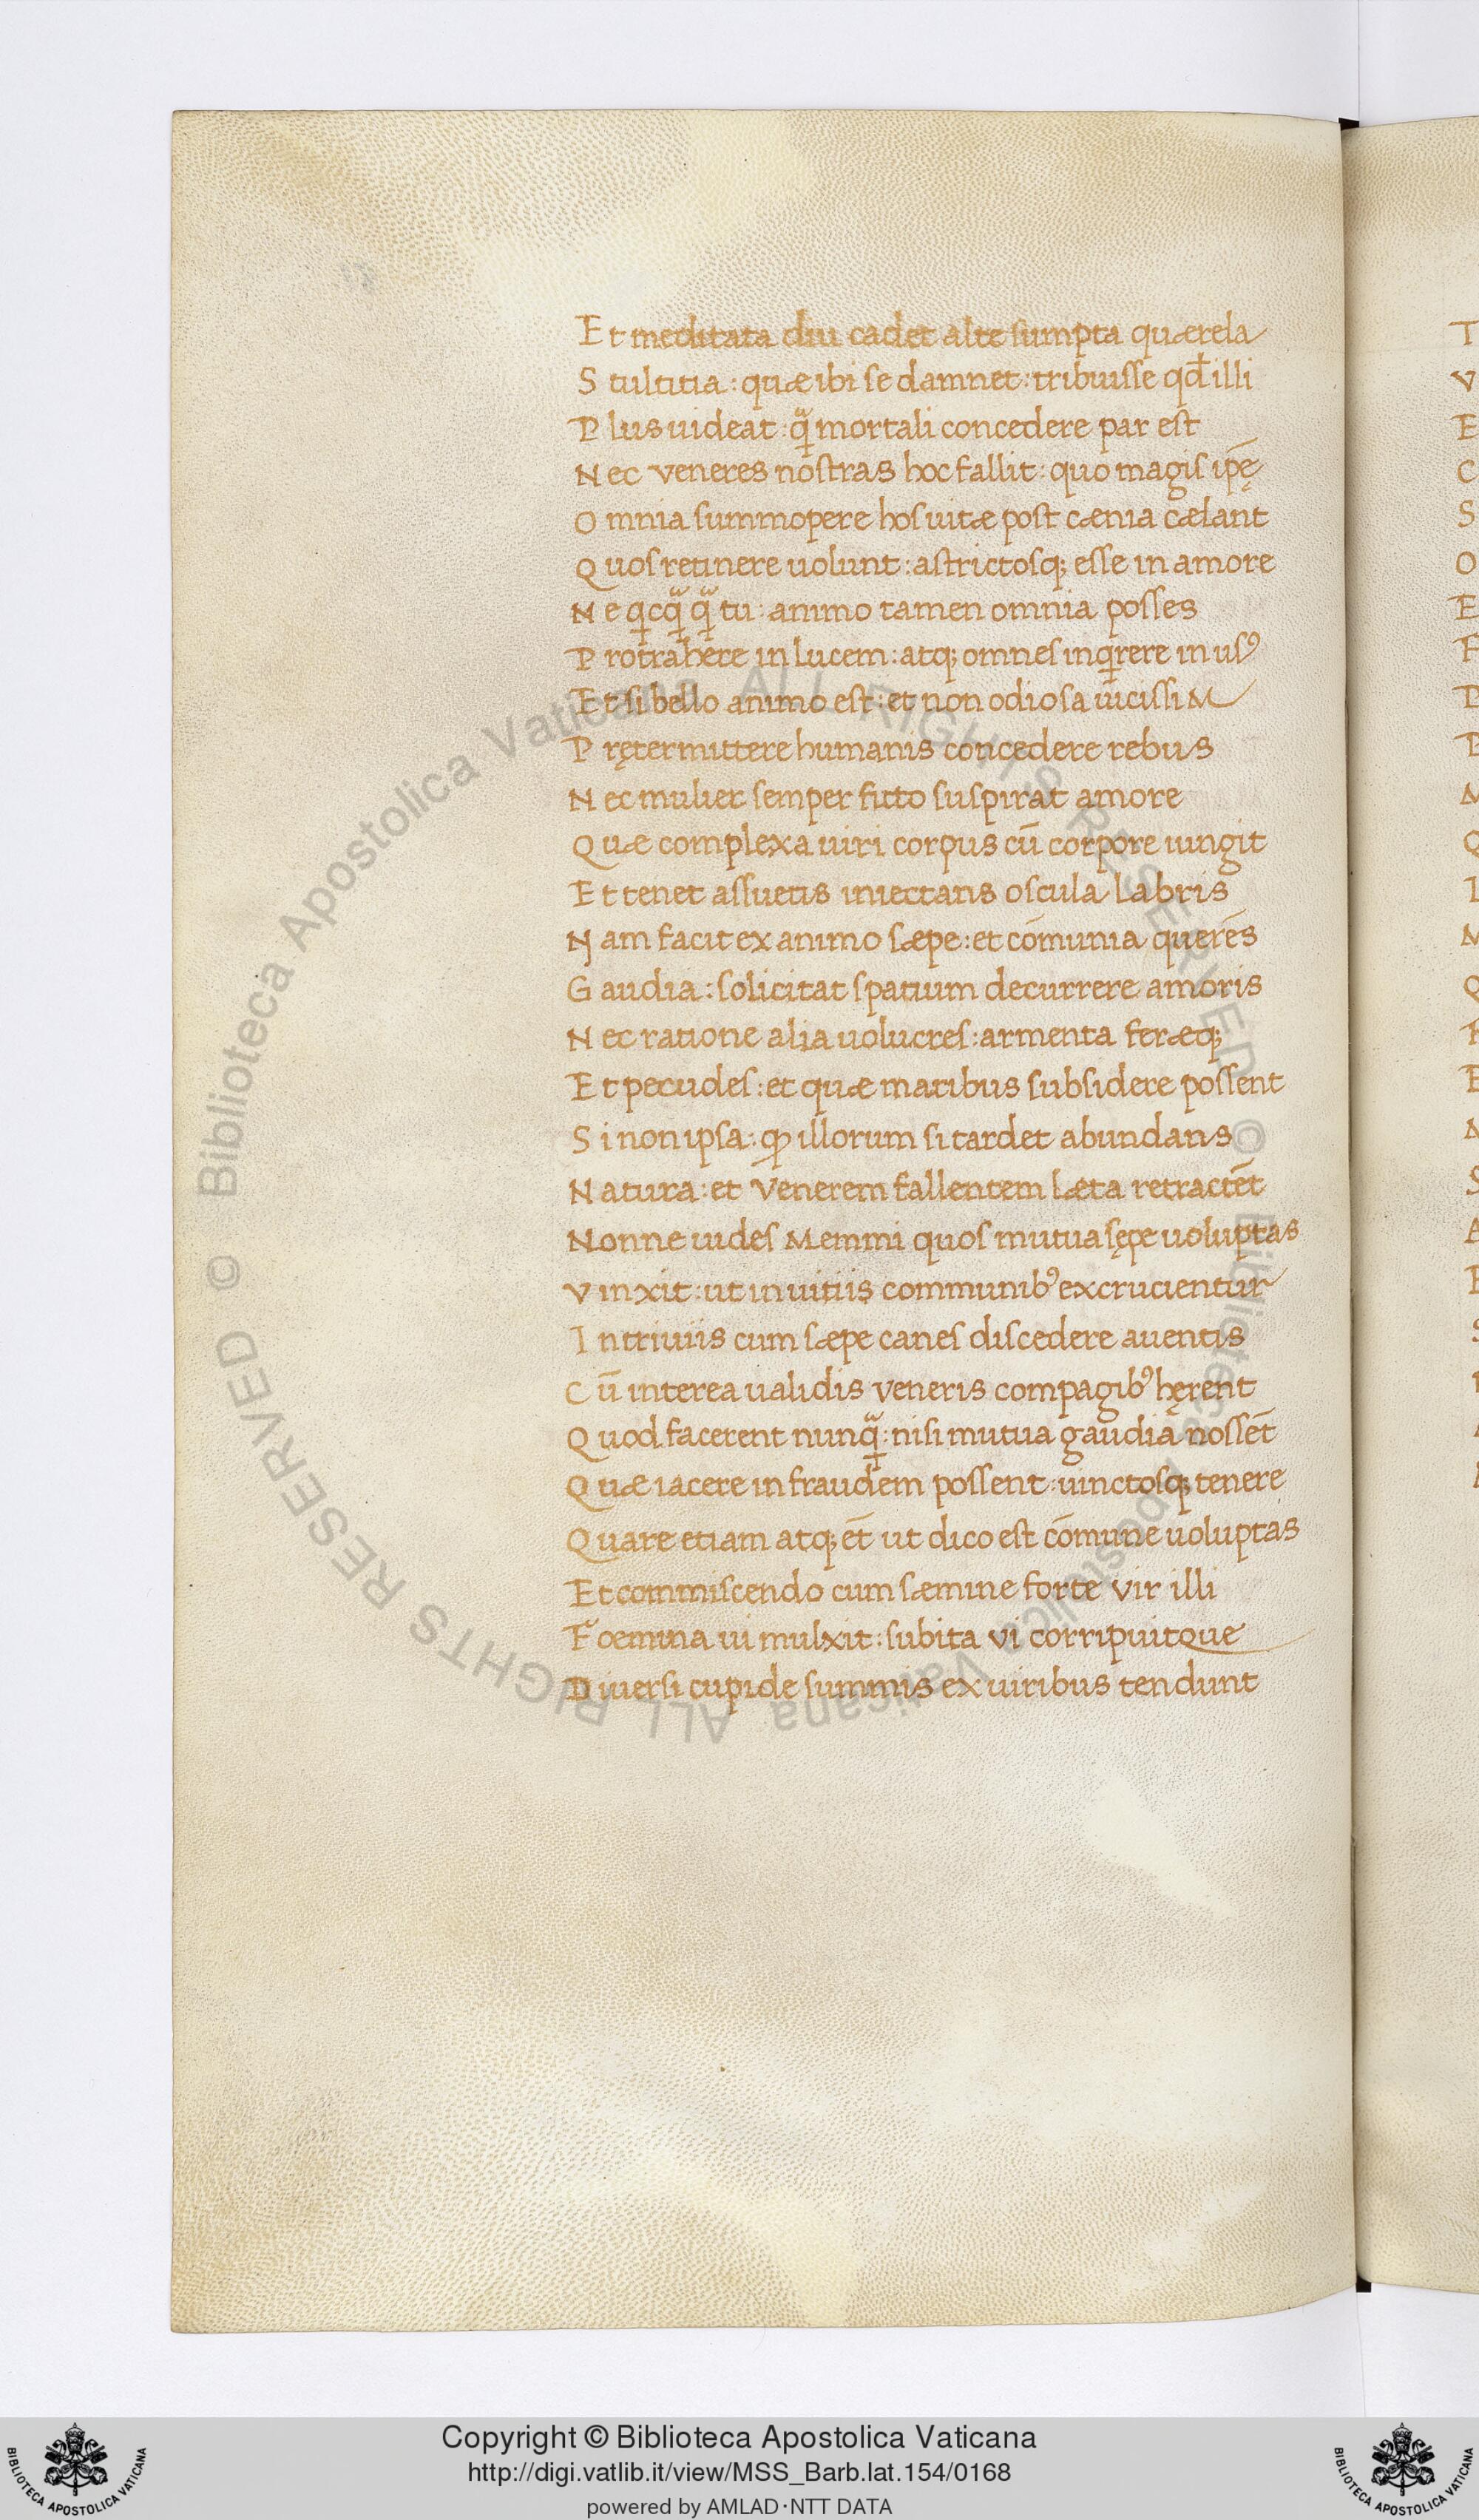 Et meditata diu cadet alte sumpta quærela
Stultitia: quæ ibi se damnet: tribuisse qđ illi
Plus uideat: q̃ mortali concedere par est
Nec veneres nostras hoc fallit: quo magis ip̄ę
Omnia summopere hos uitæ post cænia cælant
Quos retinere uolunt: astrictosq; esse in amore
Ne qcq̃ q̃ tu: animo tamen omnia posses
Protrahere in lucem: atq; omnes inqrere in usꝰ
Et si bello animo est: et non odiosa uicissiM
Prętermittere humanis concedere rebus
Nec mulier semper ficto suspirat amore
Quæ complexa uiri corpus cū corpore iungit
Et tenet assuetis iniectans oscula labris
Nam facit ex animo sæpe: et cōmunia querēs
Gaudia: solicitat spatium decurrere amoris
Nec ratione alia uolucres: armenta feræq;
Et pecudes: et quæ maribus subsidere possent
Si non ipsa: ꝙ illorum si tardet abundans
Natura: et Venerem fallentem læta retractēt
Nonne uides Memmi quos mutua sępe uoluptas
Vinxit: ut in uitiis communibꝰ excrucientur
In triuiis cum sæpe canes discedere auentis
Cū interea ualidis veneris compagibꝰ hęrent
Quod facerent nunq̃: nisi mutua gaudia nossēt
Quæ iacere in fraudem possent: uinctosq; tenere
Quare etiam atq; et̄ ut dico est cōmune uoluptas
Et commiscendo cum sæmine forte vir illi
Foemina ui mulxit: subita vi corripuitque
Diuersi cupide summis ex uiribus tendunt
© Biblioteca Apostolica Vaticana ALL RIGHTS RESERVED © Biblioteca Apostolica Vaticana ALL RIGHTS RESERVED
Copyright © Biblioteca Apostolica Vaticana
http://digi.vatlib.it/view/MSS_Barb.lat.154/0168
powered by AMLAD·NTT DATA
BIBLIOTECA APOSTOLICA VATICANA
BIBLIOTECA APOSTOLICA VATICANA